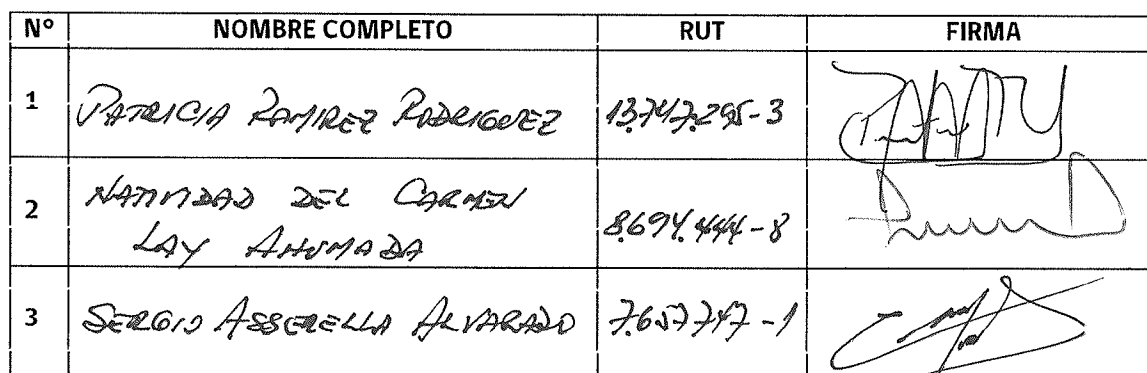 N° NOMBRE COMPLETO RUT FIRMA
1 PATRICIA RAMIREZ RODRIGUEZ 13.747.295-3
2 NATIVIDAD DEL CARMEN
LAY AHUMADA 8.694.444-8
3 SERGIO ASSERELLA ALVARADO 7.657.747-1